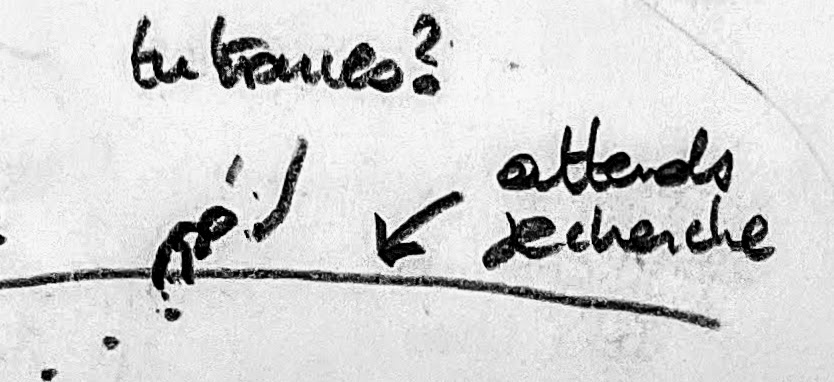 tu trouves?
attends
je cherche